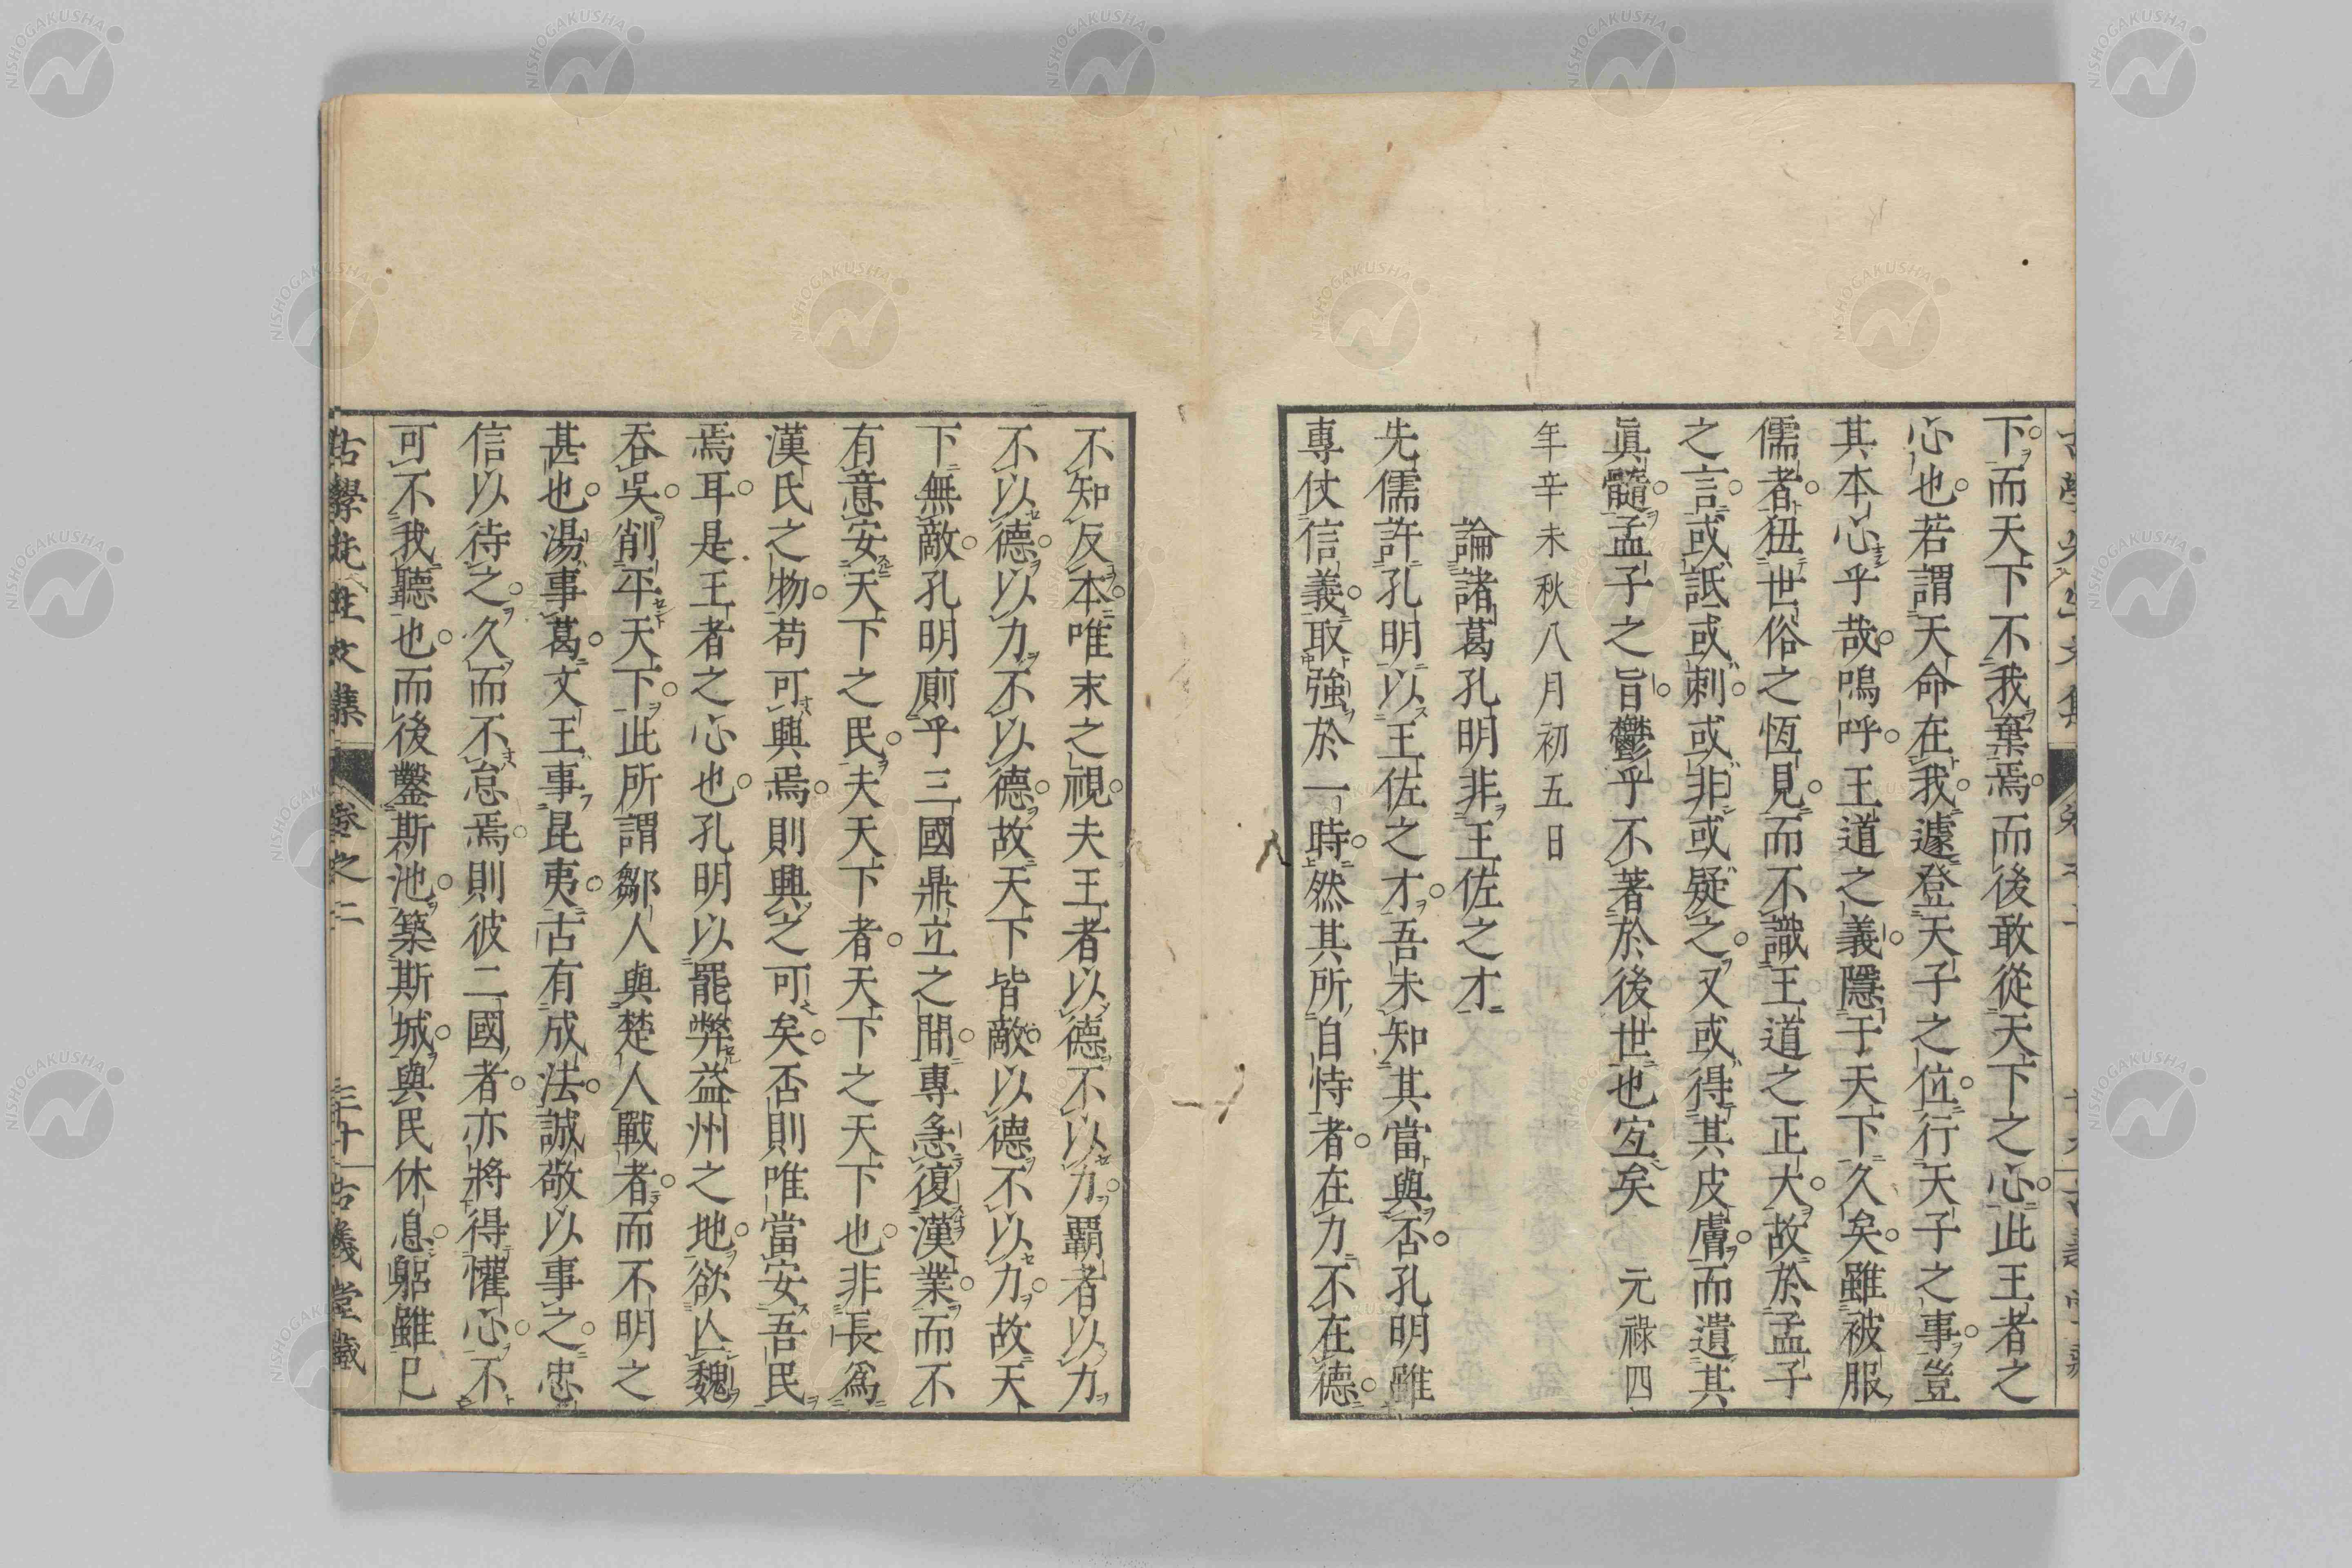 下而天下不我棄焉而後敢從天下之心此王者之
心也若謂天命在我遽登天子之位行天子之事豈
其本心乎哉嗚呼王道之義隱于天下久矣雖被服
儒者狃世俗之恆見而不識王道之正大故於孟子
之言或詆或刺或非或疑之又或得其皮膚而遺其
眞髓孟子之旨鬱乎不著於後世也宜矣 元祿四
年辛未秋八月初五日
論諸葛孔明非王佐之才
先儒許孔明以王佐之才吾未知其當與否孔明雖
專仗信義取強於一時然其所自恃者在力不在德
不知反本唯末之視夫王者以德不以力覇者以力
不以德以力不以德故天下皆敵以德不以力故天
下無敵孔明廁乎三國鼎立之間專急復漢業而不
有意安天下之民夫天下者天下之天下也非長爲
漢氏之物苟可興焉則興之可矣否則唯當安吾民
焉耳是王者之心也孔明以罷弊益州之地欲亾魏
吞吳削平天下此所謂鄒人與楚人戰者而不明之
甚也湯事葛文王事昆夷古有成法誠敬以事之忠
信以待之久而不怠焉則彼二國者亦將得懽心不
可不我聽也而後鑿斯池築斯城與民休息躬雖已
古學先生文集 卷之二 三十 古義堂藏
NISHOGAKUSHA